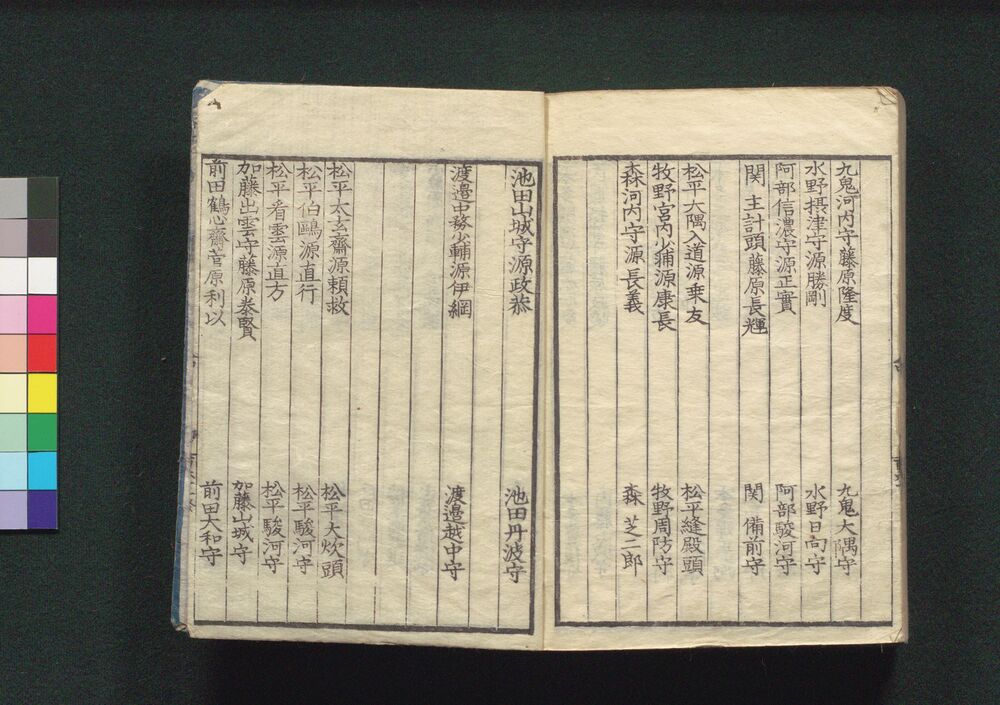 九鬼河内守藤原隆度 九鬼大隅守
水野摂津守源勝剛 水野日向守
阿部信濃守源正實 阿部駿河守
関 主計頭藤原長輝 関 備前守
松平大隅入道源乗友 松平縫殿頭
牧野宮内少輔源康長 牧野周防守
森河内守源長義 森 芝二郎
池田山城守源政恭 池田丹波守
渡邉中務少輔源伊綱 渡邉越中守
松平太玄齋源頼救 松平大炊頭
松平伯鷗源直行 松平駿河守
松平看雲源直方 松平駿河守
加藤出雲守藤原泰賢 加藤山城守
前田鶴心齋菅原利以 前田大和守